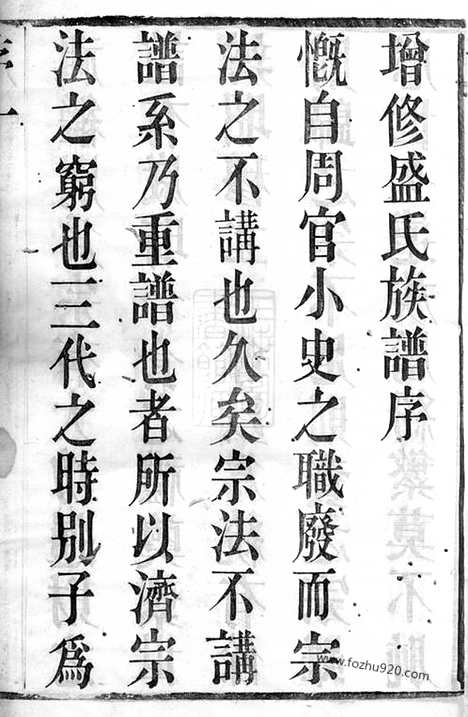 增修盛氏族譜序
慨自周官小史之職廢而宗
法之不講也久矣宗法不講
譜系乃重譜也者所以濟宗
法之窮也三代之時別子爲
www.fozhu920.com